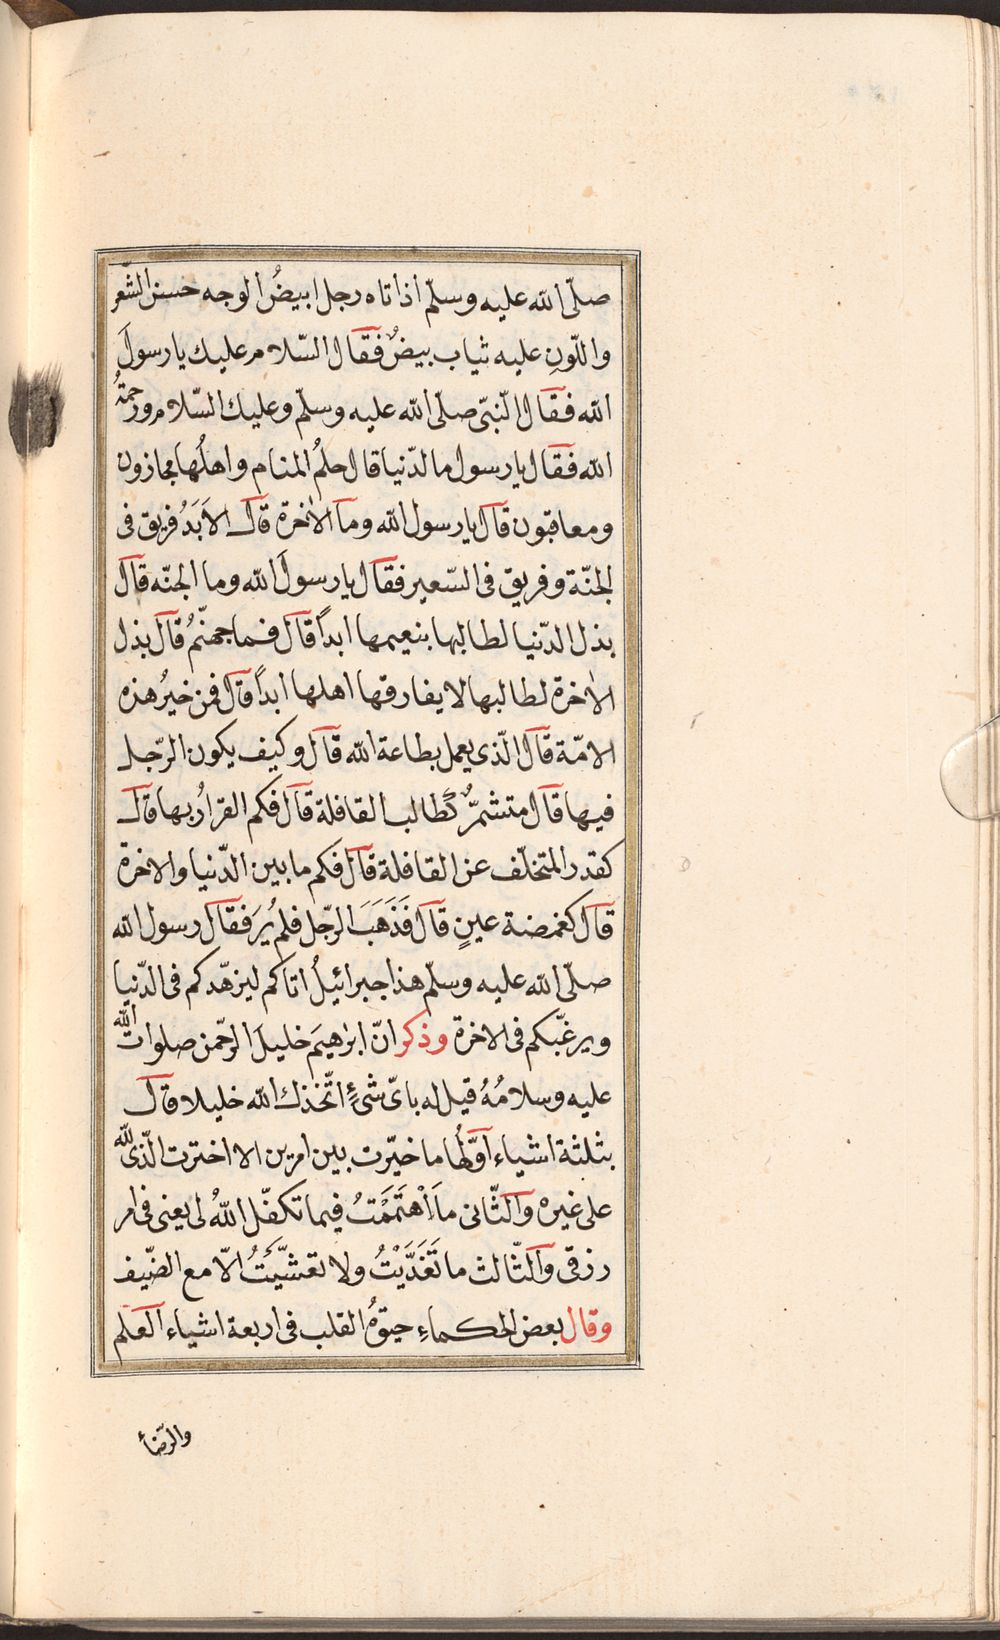 صلّى الله عليه وسلّم اذ اتاه رجل ابيضُ الوجه حسن الشّعر
واللّونِ عليه ثياب بيضٌ فقال السّلام عليك يا رسولَ
الله فقال النّبىّ صلّى الله عليه وسلّم وعليك السّلام ورحمةُ
الله فقال يا رسول ما لدّنيا قال حلمُ المنام واهلُها مجازون
ومعاقبون قال يا رسول الله وما الاٰخرة قال الاَبَدُ فريق فى
الجنّة وفريق فى السّعير فقال يا رسولَ الله وما الجنّه قال
بذل الدّنيا لطالبها بنعيمها ابداً قال فما جهنّمُ قال بذل
الاٰخرة لطالبها لا يفارقها اهلها ابداً قال فمن خيرُ هذه
الامّة قال الّذى يعمل بطاعة الله قال وكيف يكون الرّجل
فيها قال متشمّرٌ كَطالب القافلة قال فكم القرارُ بها قال
كقدر المتخلّف عن القافلة قال فكم ما بين الدّنيا والاخرة
قال كغمضة عينٍ قال فَذَهَبَ الرّجل فلم يُرَ فقال رسول الله
صلّى الله عليه وسلّم هذا جبرائيلُ اتاكم ليزهّدكم فى الدّنيا
ويرغّبكم فى الاخرة وذكر انّ ابرٰهيمَ خليلَ الرّحمن صلوات الله
عليه وسلامُهُ قيل له باىّ شىءٍ اتّخذك الله خليلا قال
بثلثة اشياء اوّلُها ما خيّرت بين امرين الا اخترت الّذى لله
على غيره والثّانى ما اَهْتَمَمْتُ فيما تكفّل اللهُ لى يعنى فى امر
رزقى والثّالث ما تَغَدَّيْتُ ولا تعشّيَتُ الاّ مع الضّيف
وقال بعض الحكماءِ حيوةُ القلب فى اربعة اشياء العلم
والرّضاء